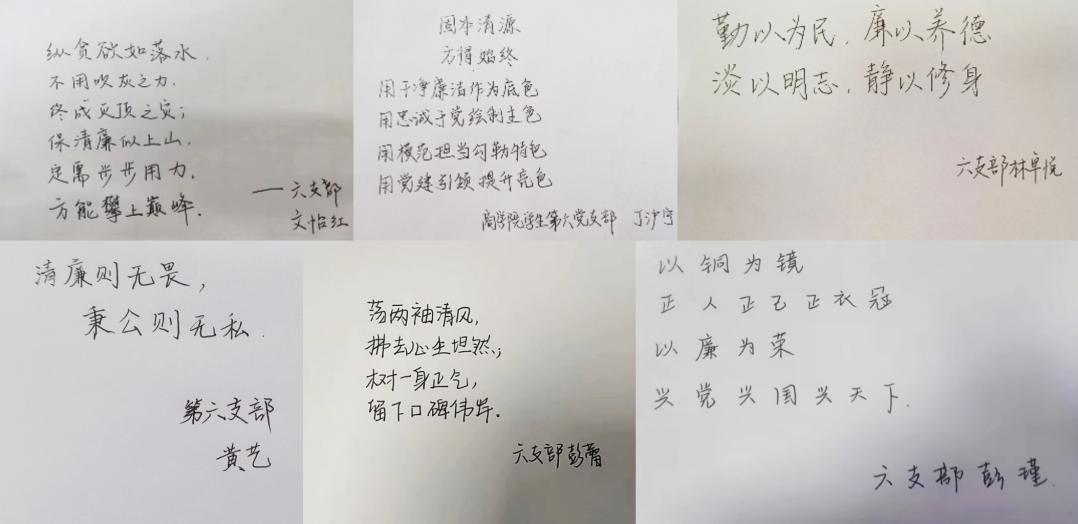 纵贪欲如落水,
不用吹灰之力.
终成灭顶之灾;
保清廉似上山.
定需步步用力,
方能攀上巅峰.
——六支部
文怡红
固本清源
方得始终
用干净廉洁作为底色
用忠诚于党绘制主色
用模范担当勾勒特色
用党建引领提升亮色
商学院学生第六党支部 丁沪宁
勤以为民,廉以养德
淡以明志,静以修身
六支部林卓悦
清廉则无畏,
秉公则无私.
第六支部
黄艺
荡两袖清风,
拂去心生坦然;
树一身正气,
留下口碑伟岸.
六支部彭蕾
以铜为镜
正人正己正衣冠
以廉为荣
兴党兴国兴天下.
六支部彭瑾.